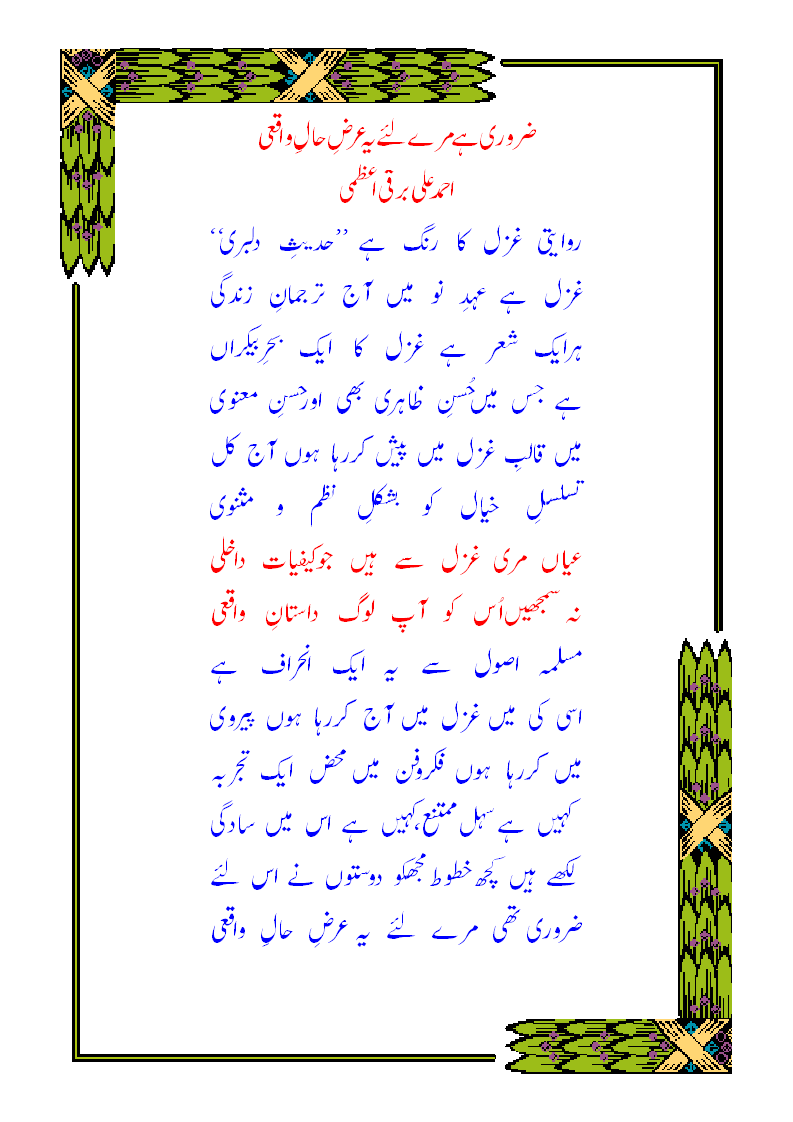 ضروری ہے مرے لئے یہ عرضِ حالِ واقعی
احمد علی برقی اعظمی
روایتی غزل کا رنگ ہے ’’حدیثِ دلبری‘‘
غزل ہے عہدِ نو میں آج ترجمانِ زندگی
ہرایک شعر ہے غزل کا ایک بحرِبیکراں
ہے جس میں حُسنِ ظاہری بھی اورحسنِ معنوی
میں قالبِ غزل میں پیش کررہا ہوں آج کل
تسلسلِ خیال کو بشکلِ نظم و مثنوی
عیاں مری غزل سے ہیں جوکیفیات داخلی
نہ سمجھیں اُس کو آپ لوگ داستانِ واقعی
مسلمہ اصول سے یہ ایک انحراف ہے
اسی کی میں غزل میں آج کررہا ہوں پیروی
میں کررہا ہوں فکروفن میں محض ایک تجربہ
کہیں ہے سہل ممتنع،کہیں ہے اس میں سادگی
لکھے ہیں کچھ خطوط مجھکو دوستوں نے اس لئے
ضروری تھی مرے لئے یہ عرضِ حالِ واقعی